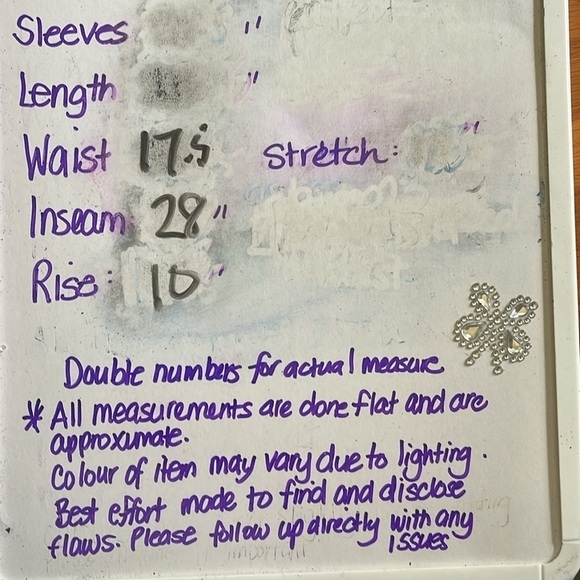 Sleeves "
Length "
Waist 17.5 Stretch: "
Inseam 28"
Rise: 10 "
Double numbers for actual measure
* All measurements are done flat and are
approximate.
Colour of item may vary due to lighting.
Best effort made to find and disclose
flaws. Please follow up directly with any
issues